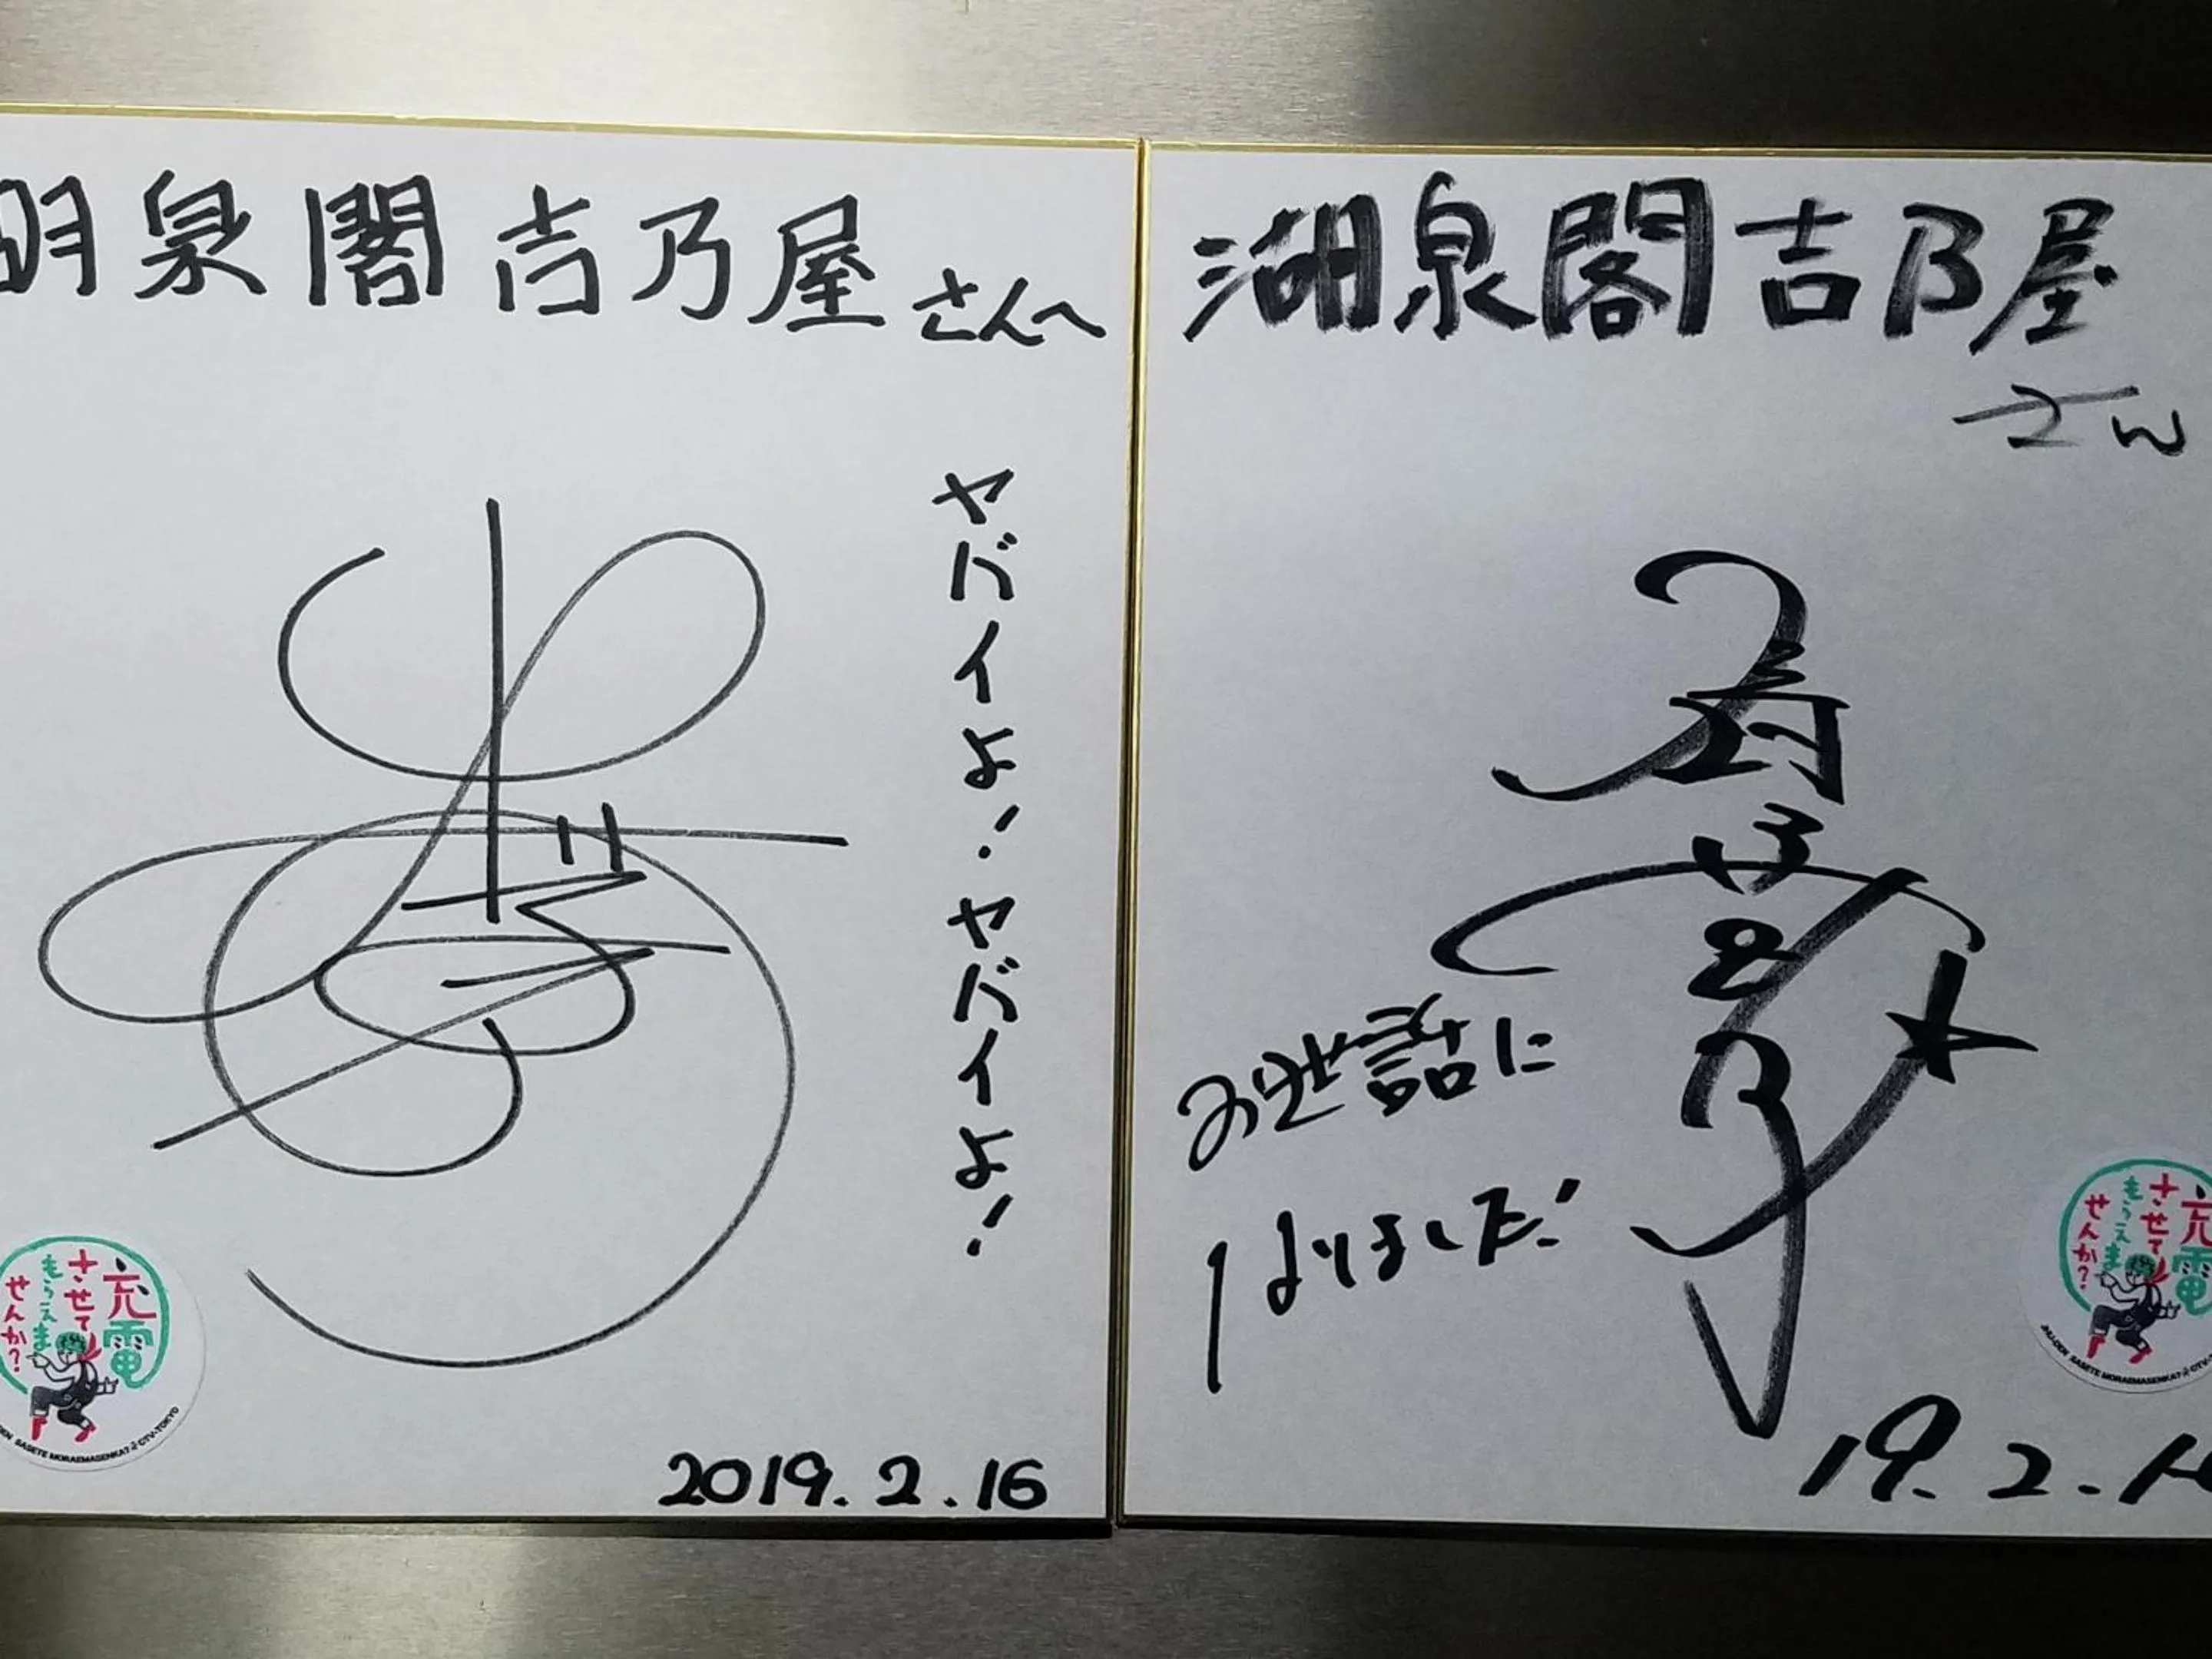 湖泉閣吉乃屋さんへ
ヤバイよ!ヤバイよ!
充電
させて
もらえま
せんか?
SASETE MORAEMASENKA? ©TV-TOKYO
2019.2.16
湖泉閣吉乃屋
さん
お世話に
なりました!
充電
させて
もらえま
せんか?
SASETE MORAEMASENKA? ©TV-T
19.2.16